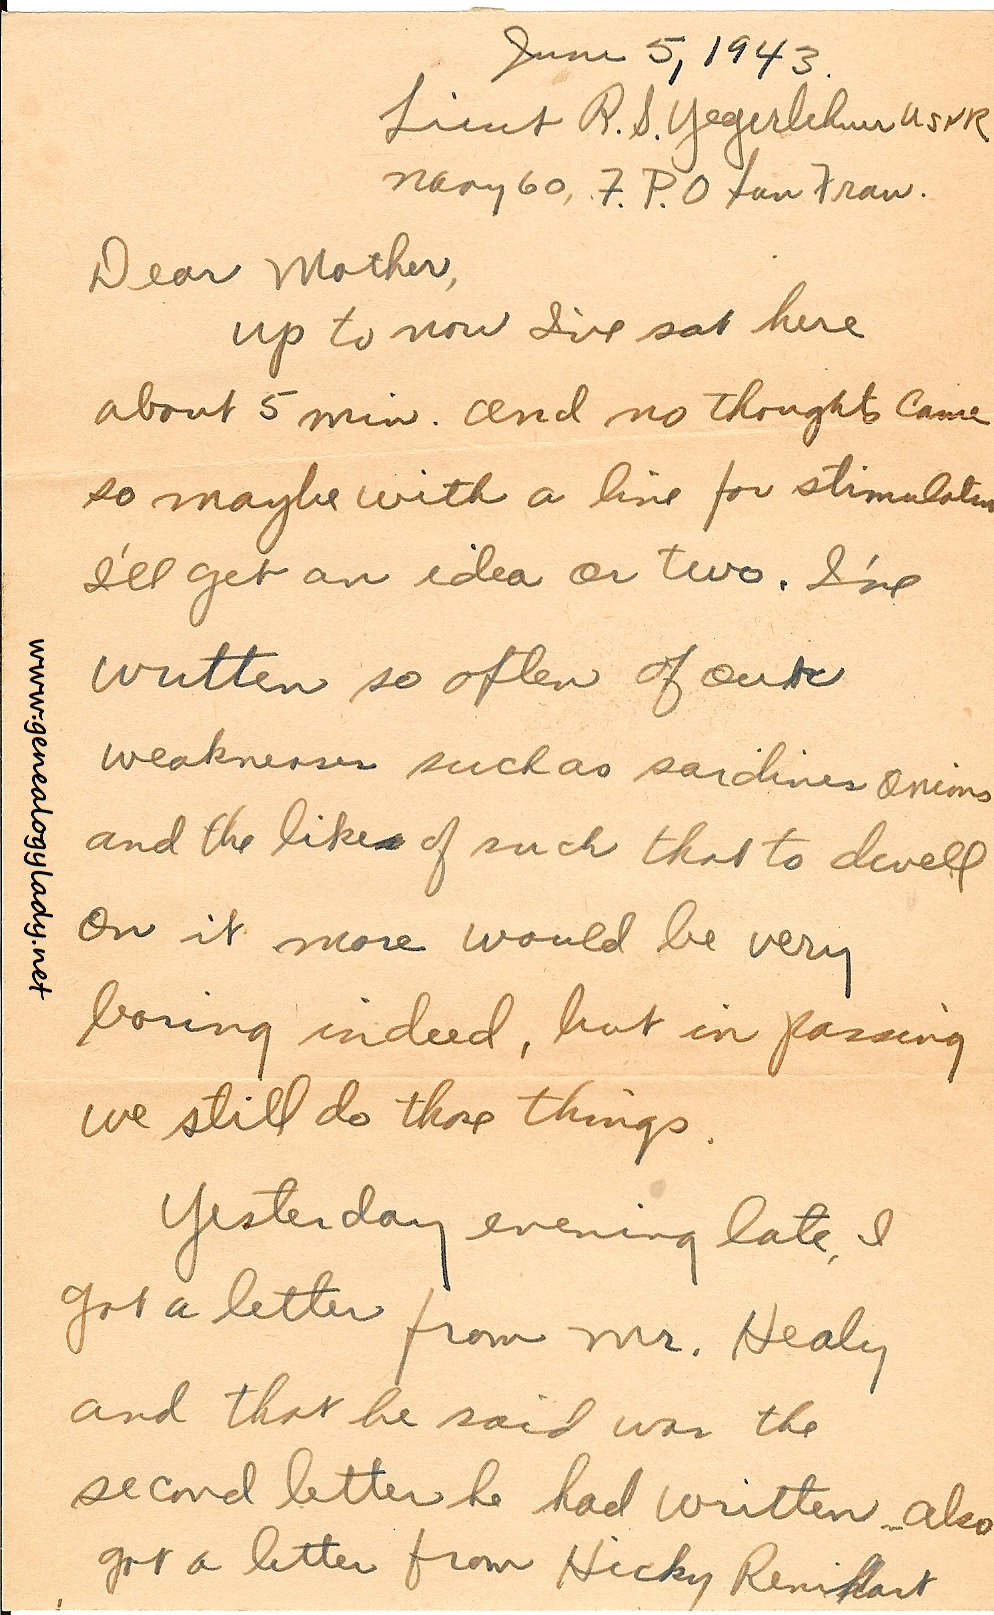 June 5, 1943.
Lieut R.S. Yegerlehner USNR
Navy 60, F.P.O San Fran.
Dear Mother,
up to now I've sat here
about 5 min. and no thoughts came
so maybe with a line for stimulation
I'll get an idea or two. I've
written so often of our
weaknesses such as sardines onions
and the likes of such that to dwell
on it more would be very
boring indeed, but in passing
we still do those things.
Yesterday evening late, I
got a letter from Mr. Healy
and that he said was the
second letter he had written - also
got a letter from Hicky Reinhart
www.genealogylady.net